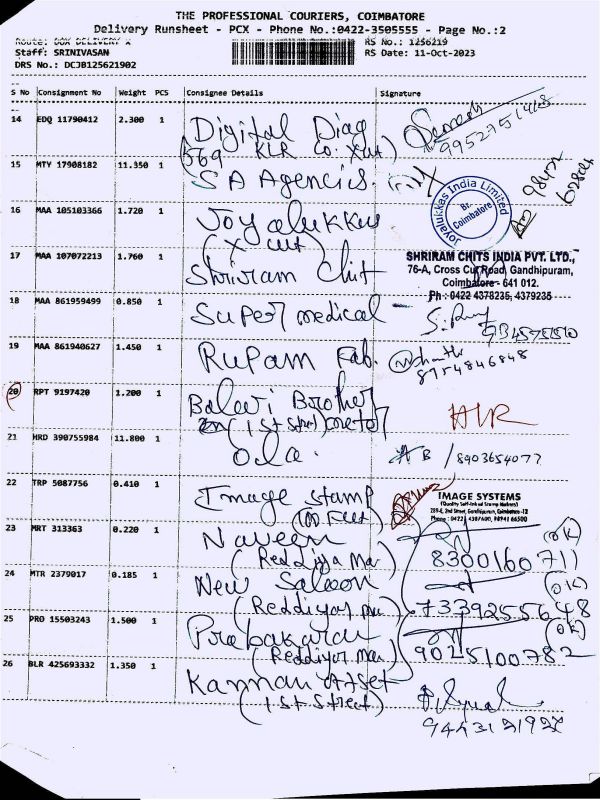 THE PROFESSIONAL COURIERS, COIMBATORE
Delivery Runsheet - PCX - Phone No.:0422-3505555 - Page No.:2
RS No.: 1256219
Staff: SRINIVASAN RS Date: 11-Oct-2023
DRS No.: DCJB125621902
S No Consignment No Weight PCS Consignee Details Signature
14 EDQ 11790412 2.300 1 Digital Diag
(569 KLR Co. Xcut)
15 MTY 17908182 11.350 1 SA Agencies.
Joyalukkas India Limited
Br.
Coimbatore
16 MAA 105103366 1.720 1 Joyalukkus
(X cut)
17 MAA 107072213 1.760 1 Shriram Chit
SHRIRAM CHITS INDIA PVT. LTD.,
76-A, Cross Cut Road, Gandhipuram,
Coimbatore - 641 012.
Ph : 0422 4378235, 4379235
18 MAA 861959499 0.850 1 Super medical
19 MAA 861940627 1.450 1 Rupam Fab.
8754846848
20 RPT 9197420 1.200 1 Balavi Brother
(1st street)
21 HRD 390755984 11.800 1 Ola. 8903654077
22 TRP 5087756 0.410 1 Image stamp
(100 Feet)
IMAGE SYSTEMS
23 MRT 313363 0.220 1 Naveen
(Reddiya Mar) 8300160711 (OK)
24 MTR 2379017 0.185 1 New Saloon
(Reddiyar Mar) 7339255648 (OK)
25 PRO 15503243 1.500 1 Prabakaran
(Reddiyar Mar) 9025100782 (OK)
26 BLR 425693332 1.350 1 Kannan Afset
(1st street)